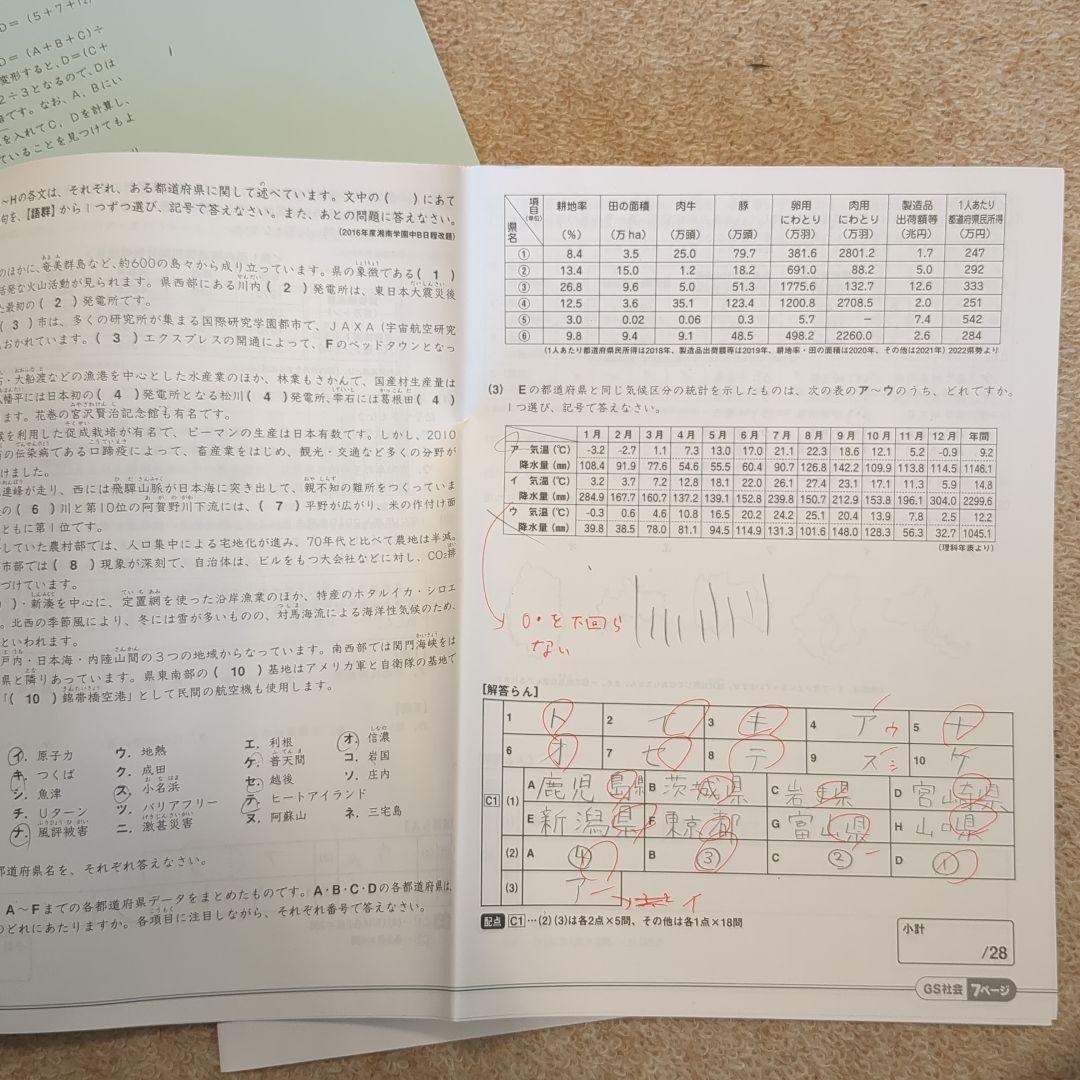 D＝（5＋7＋12）
D＝（A＋B＋C）÷
変形すると、D＝（C＋
2÷3となるので、Dは
倍です。なお、A、Bにい
を入れてC、Dを計算し、
ていることを見つけてもよ
～Hの各文は、それぞれ、ある都道府県に関して述べています。文中の（　）にあて
句を、【語群】から1つずつ選び、記号で答えなさい。また、あとの問題に答えなさい。
（2016年度湘南学園中B日程改題）
のほかに、奄美群島など、約600の島々から成り立っています。県の象徴である（ 1 ）
活発な火山活動が見られます。県西部にある川内（ 2 ）発電所は、東日本大震災後
た最初の（ 2 ）発電所です。
（ 3 ）市は、多くの研究所が集まる国際研究学園都市で、JAXA（宇宙航空研究
もおかれています。（ 3 ）エクスプレスの開通によって、Fのベッドタウンとなっ
石・大船渡などの漁港を中心とした水産業のほか、林業もさかんで、国産材生産量は
八幡平には日本初の（ 4 ）発電所となる松川（ 4 ）発電所、雫石には葛根田（ 4 ）
ます。花巻の宮沢賢治記念館も有名です。
候を利用した促成栽培が有名で、ピーマンの生産は日本有数です。しかし、2010
畜の伝染病である口蹄疫によって、畜産業をはじめ、観光・交通など多くの分野が
けました。
連峰が走り、西には飛驒山脈が日本海に突き出して、親不知の難所をつくっていま
の（ 6 ）川と第10位の阿賀野川下流には、（ 7 ）平野が広がり、米の作付け面
ともに第1位です。
していた農村部では、人口集中による宅地化が進み、70年代と比べて農地は半減。
市部では（ 8 ）現象が深刻で、自治体は、ビルをもつ大会社などに対し、CO₂排
づけています。
）・新湊を中心に、定置網を使った沿岸漁業のほか、特産のホタルイカ・シロエ
。北西の季節風により、冬には雪が多いものの、対馬海流による海洋性気候のため、
といわれます。
戸内・日本海・内陸山間の3つの地域からなっています。南西部では関門海峡をは
県と隣りあっています。県東南部の（ 10 ）基地はアメリカ軍と自衛隊の基地で
「（ 10 ）錦帯橋空港」として民間の航空機も使用します。
イ．原子力　ウ．地熱　エ．利根　オ．信濃
キ．つくば　ク．成田　ケ．普天間　コ．岩国
シ．魚津　ス．小名浜　セ．越後　ソ．庄内
チ．Uターン　ツ．バリアフリー　テ．ヒートアイランド
ナ．風評被害　ニ．激甚災害　ヌ．阿蘇山　ネ．三宅島
都道府県名を、それぞれ答えなさい。
A～Fまでの各都道府県データをまとめたものです。A・B・C・Dの各都道府県は、
のどれにあたりますか。各項目に注目しながら、それぞれ番号で答えなさい。
項目（単位）　県名　耕地率（%）　田の面積（万ha）　肉牛（万頭）　豚（万頭）　卵用にわとり（万羽）　肉用にわとり（万羽）　製造品出荷額等（兆円）　1人あたり都道府県民所得（万円）
①　8.4　3.5　25.0　79.7　381.6　2801.2　1.7　247
②　13.4　15.0　1.2　18.2　691.0　88.2　5.0　292
③　26.8　9.6　5.0　51.3　1775.6　132.7　12.6　333
④　12.5　3.6　35.1　123.4　1200.8　2708.5　2.0　251
⑤　3.0　0.02　0.06　0.3　5.7　－　7.4　542
⑥　9.8　9.4　9.1　48.5　498.2　2260.0　2.6　284
（1人あたり都道府県民所得は2018年、製造品出荷額等は2019年、耕地率・田の面積は2020年、その他は2021年）2022県勢より
(3)　Eの都道府県と同じ気候区分の統計を示したものは、次の表のア～ウのうち、どれですか。
1つ選び、記号で答えなさい。
1月　2月　3月　4月　5月　6月　7月　8月　9月　10月　11月　12月　年間
ア　気温（℃）　-3.2　-2.7　1.1　7.3　13.0　17.0　21.1　22.3　18.6　12.1　5.2　-0.9　9.2
降水量（mm）　108.4　91.9　77.6　54.6　55.5　60.4　90.7　126.8　142.2　109.9　113.8　114.5　1146.1
イ　気温（℃）　3.2　3.7　7.2　12.8　18.1　22.0　26.1　27.4　23.1　17.1　11.3　5.9　14.8
降水量（mm）　284.9　167.7　160.7　137.2　139.1　152.8　239.8　150.7　212.9　153.8　196.1　304.0　2299.6
ウ　気温（℃）　-0.3　0.6　4.6　10.8　16.5　20.2　24.2　25.1　20.4　13.9　7.8　2.5　12.2
降水量（mm）　39.8　38.5　78.0　81.1　94.5　114.9　131.3　101.6　148.0　128.3　56.3　32.7　1045.1
（理科年表より）
0°を下回ら
ない
【解答らん】
1　ト　2　イ　3　キ　4　ア　ウ　5　ナ
6　オ　7　セ　8　テ　9　ス　シ　10　ケ
C1　(1)　A　鹿児島県　B　茨城県　C　岩手県　D　宮崎県
E　新潟県　F　東京都　G　富山県　H　山口県
(2)　A　④　B　③　C　②　D　①
(3)　ア　イ
配点　C1…(2)(3)は各2点×5問、その他は各1点×18問
小計
/28
GS社会　7ページ